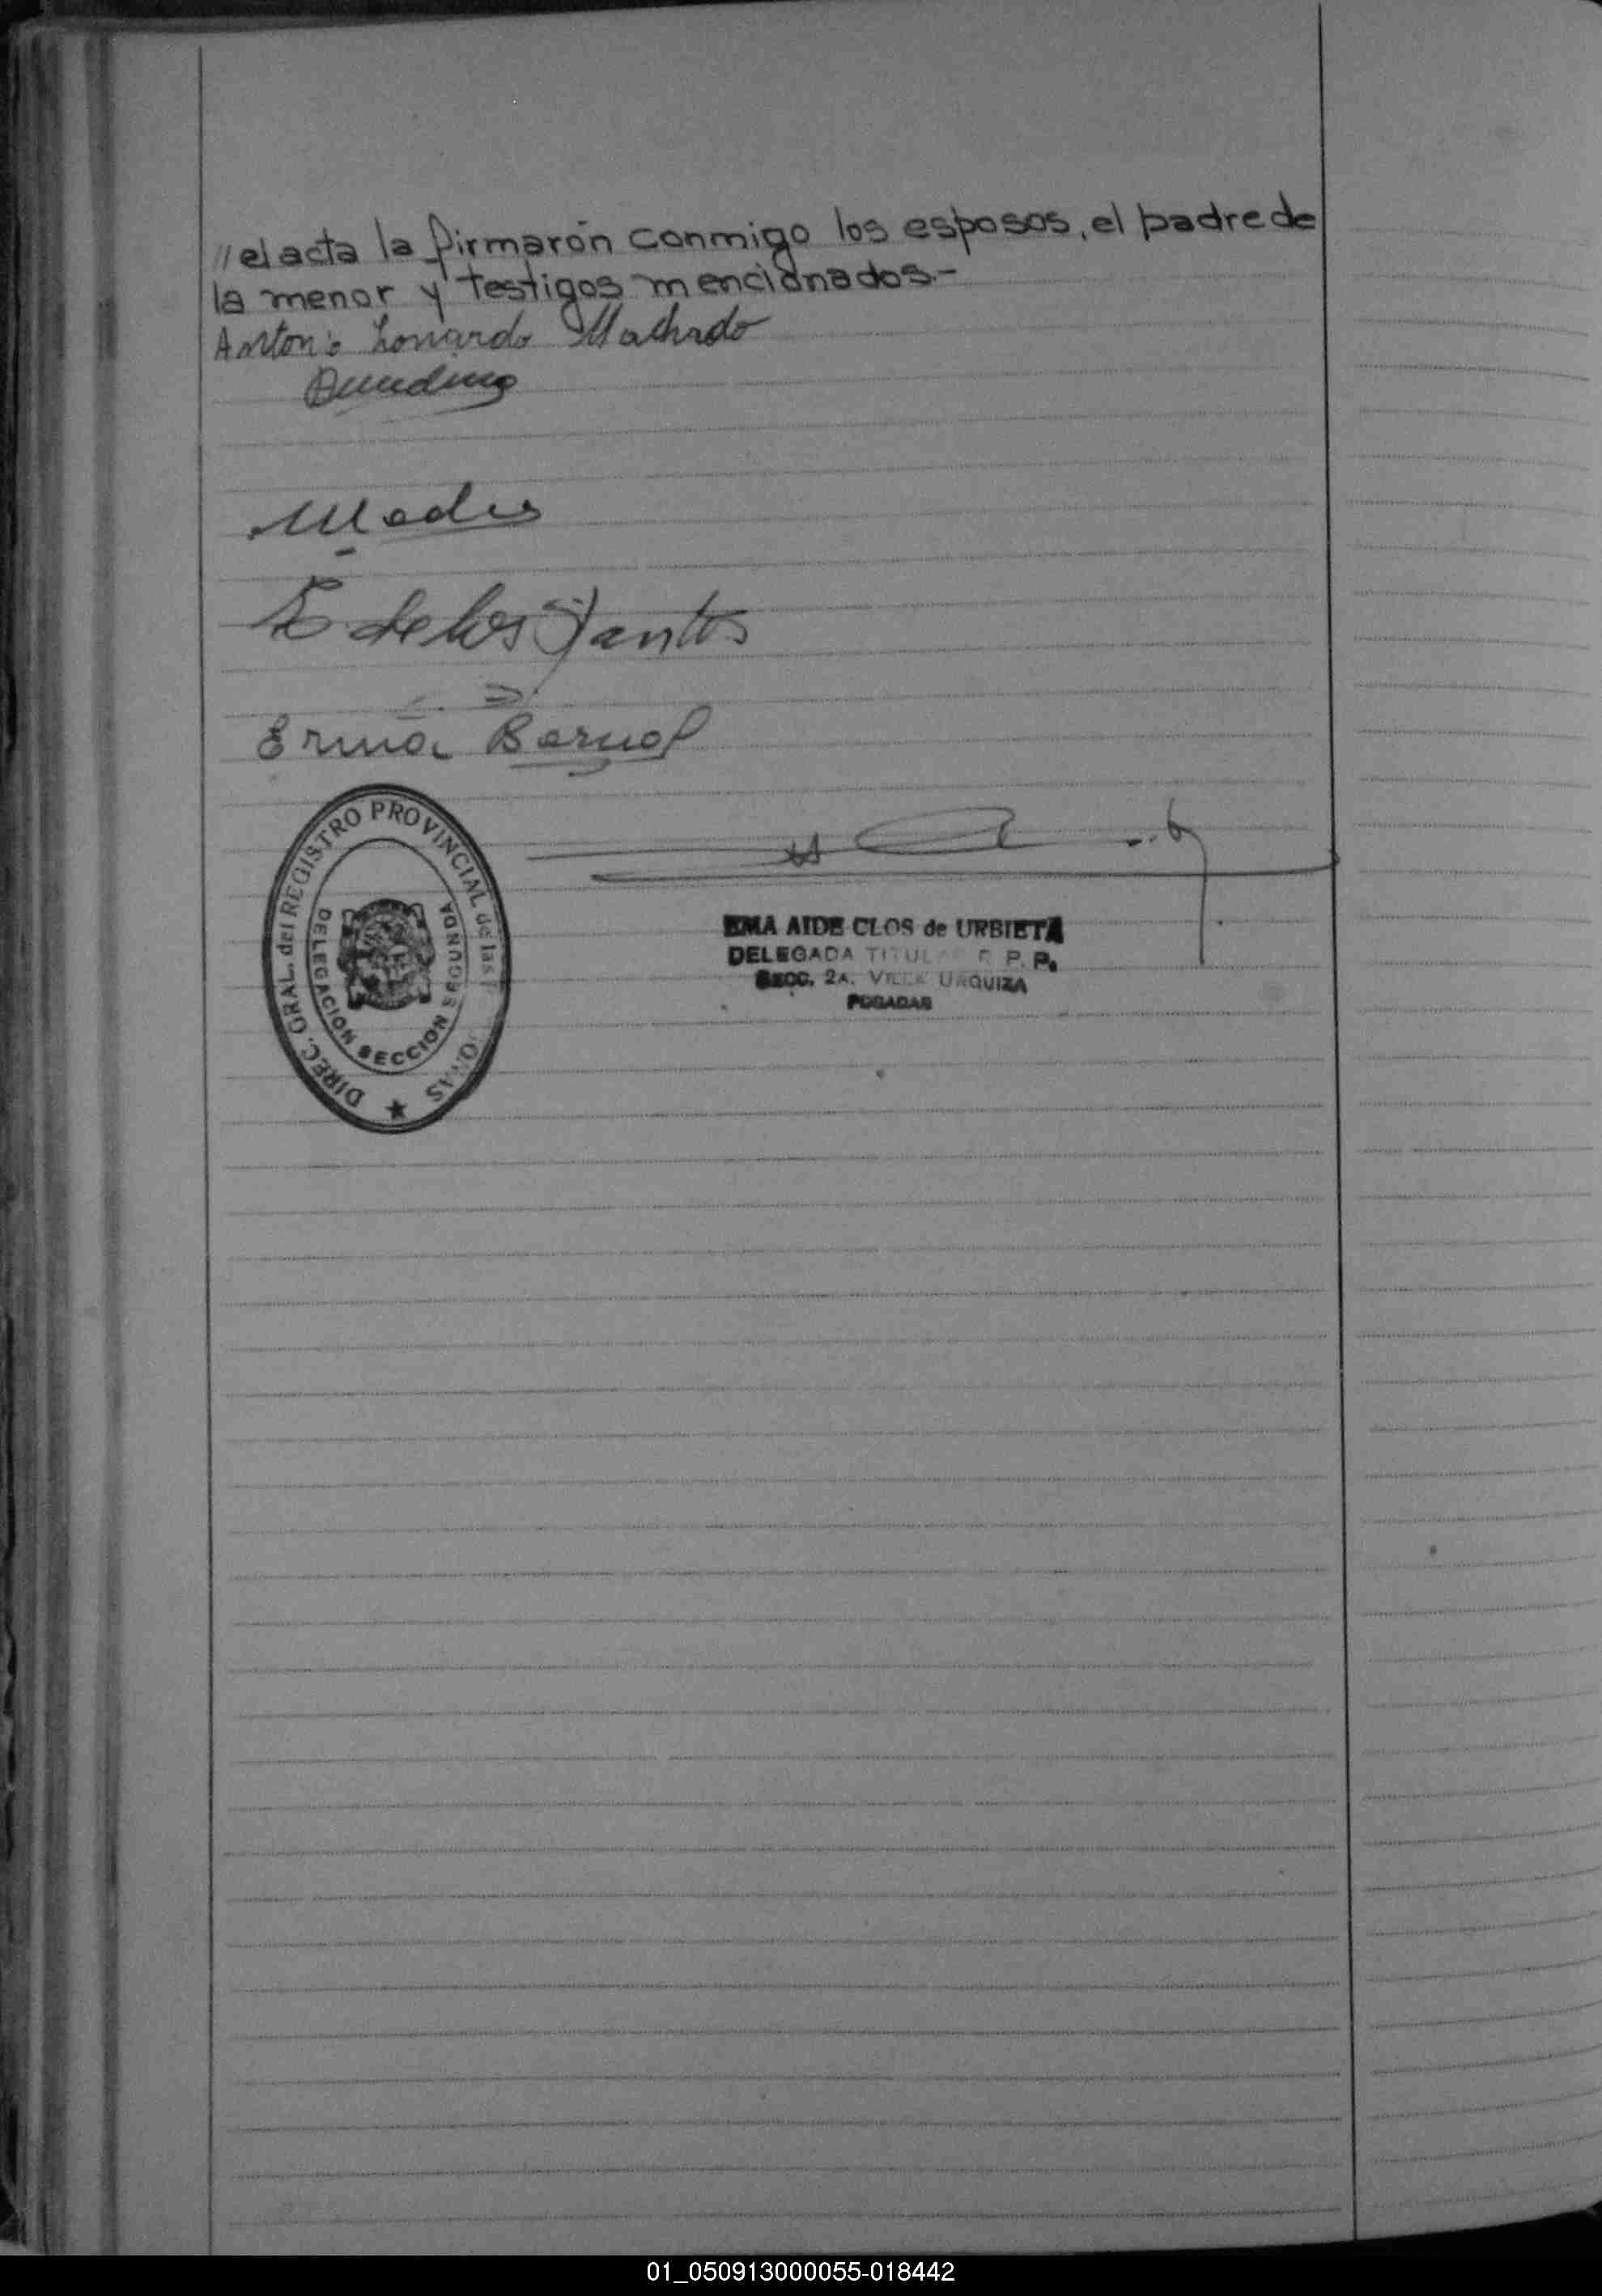 //el acta la firmarón conmigo los esposos, el padre de
la menor y testigos mencionados.-
Antonio Lonardo Machado
E. de los Santos
Erma Bernal
DIREC. GRAL. del REGISTRO PROVINCIAL de las
DELEGACION SECCION SEGUNDA
EMA AIDE CLOS de URBIETA
DELEGADA TITULAR R. P. P.
SECC. 2A. VILLA URQUIZA
POSADAS
01_050913000055-018442